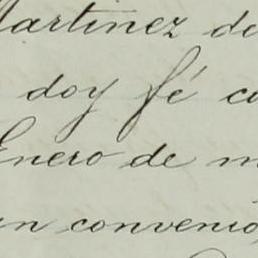 Martinez de
doy fé co
Enero de m
un convenio